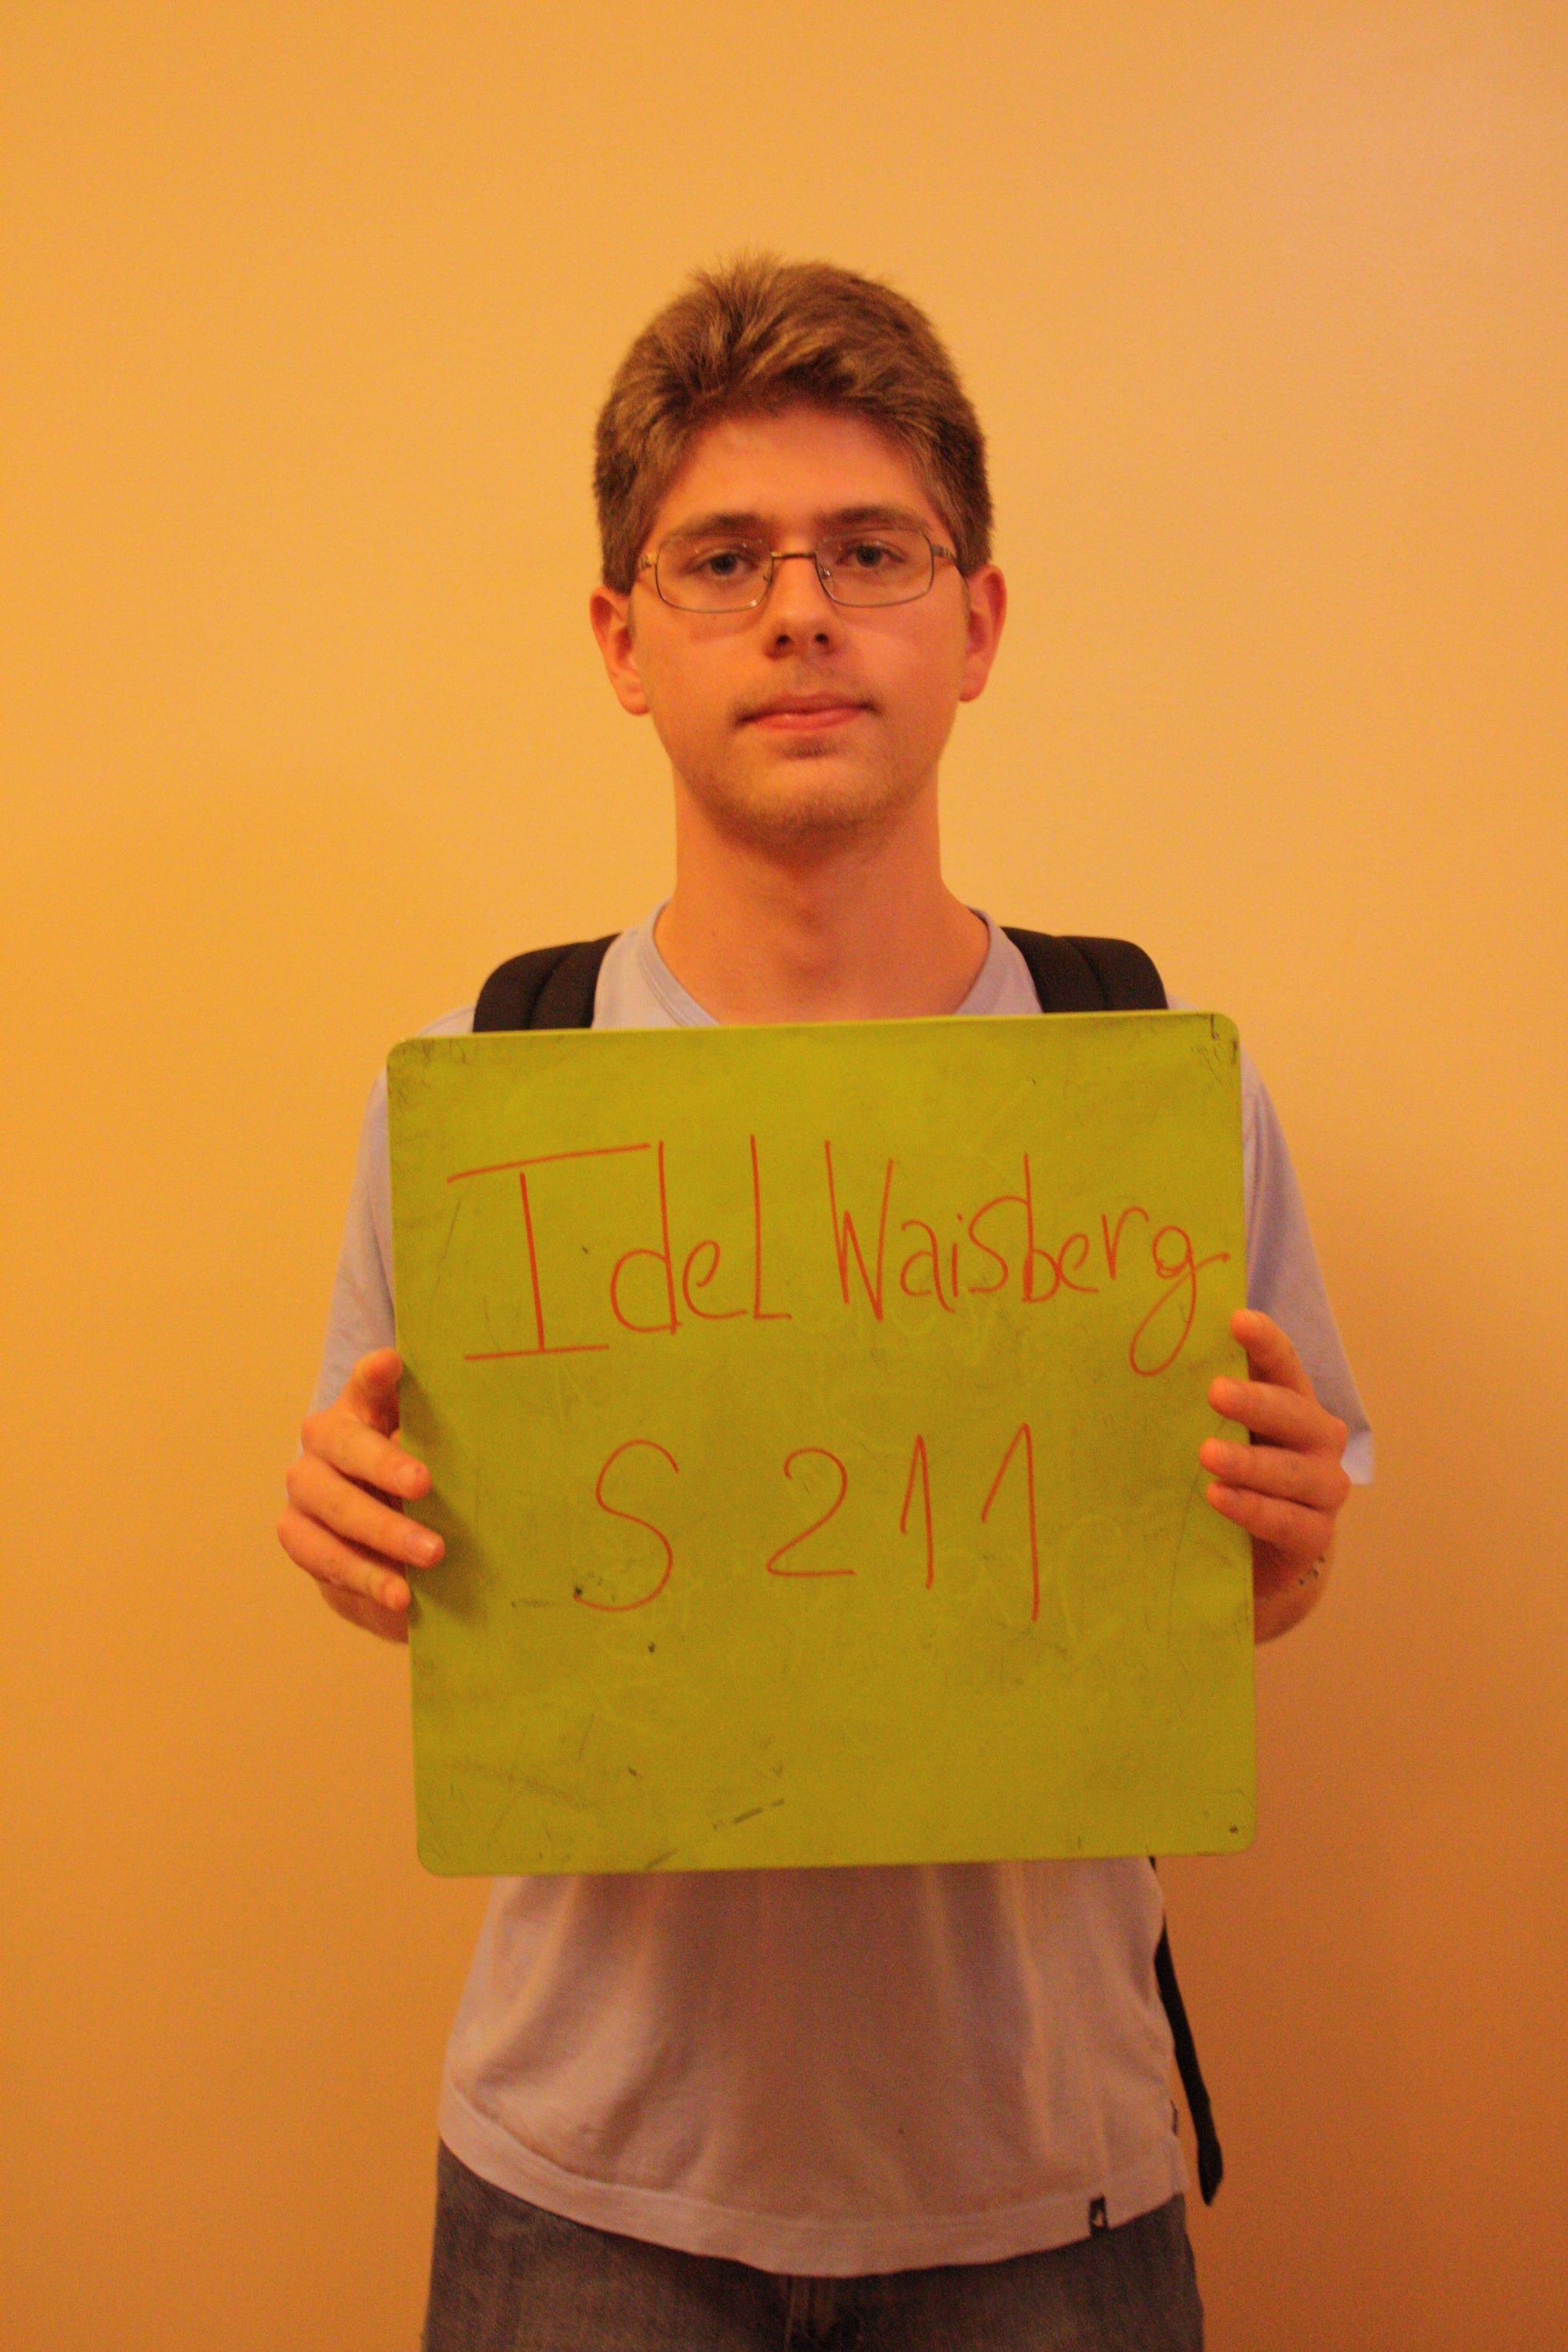 Idel Waisberg
S 211